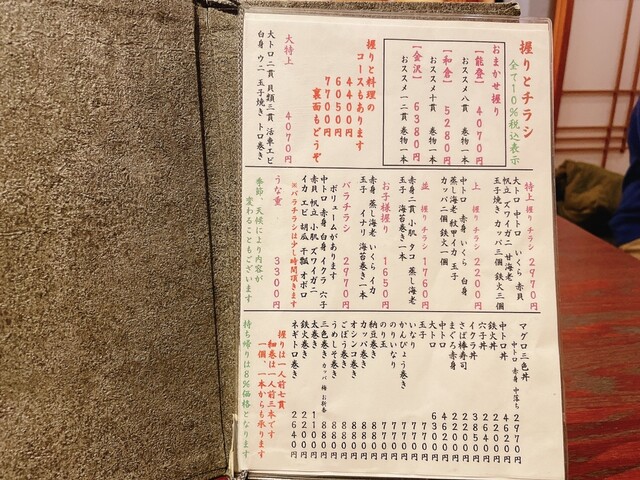 握りとチラシ
全て10％税込表示
おまかせ握り
【能登】 4070円
おススメ八貫 巻物一本
【和倉】 5280円
おススメ十貫 巻物一本
【金沢】 6380円
おススメ一二貫 巻物一本
握りと料理の
コースもあります
4400円
6050円
7700円
裏面もどうぞ
大特上 4070円
大トロ二貫 貝類三貫 活車エビ
白身 ウニ 玉子焼き トロ巻き
特上 握り チラシ 2970円
大トロ 中トロ いくら 赤貝
帆立 ズワイガニ 甘海老
玉子焼き カッパ三個 鉄火三個
上 握り チラシ 2200円
中トロ 赤身 いくら 白身
蒸し海老 紋甲イカ 玉子
カッパ二個 鉄火一個
並 握り チラシ 1760円
赤身二貫 小肌 タコ 蒸し海老
玉子 海苔巻き一本
お子様握り 1650円
赤身 蒸し海老 いくら イカ
玉子 イナリ 海苔巻き一本
バラチラシ 2970円
ボリュームがあります
中トロ 赤身 白身 イクラ 穴子
赤貝 帆立 小肌 ズワイガニ
イカ エビ 胡瓜 干瓢 オボロ
※バラチラシは少し時間頂きます
うな重 3300円
季節、天候により内容が
変わることもございます
マグロ三色丼 中トロ 赤身 中落ち 2970円
中トロ丼 4620円
鉄火丼 2200円
穴子丼 2640円
イクラ丼 3850円
さば棒寿司 2200円
まぐろ赤身 2200円
中トロ 4620円
大トロ 6930円
玉子 770円
いなり 770円
かんぴょう巻き 770円
のりいなり 770円
のり玉 770円
納豆巻き 880円
カッパ巻き 880円
オシンコ巻き 880円
ごぼう巻き 880円
うめしそ巻き 880円
三色巻き カッパ 梅 お新香 880円
太巻き 1100円
鉄火巻き 2200円
ネギトロ巻き 2640円
握りは一人前七貫
細巻は一人前三本です
一個、一本からも承ります
持ち帰りは8％価格となります